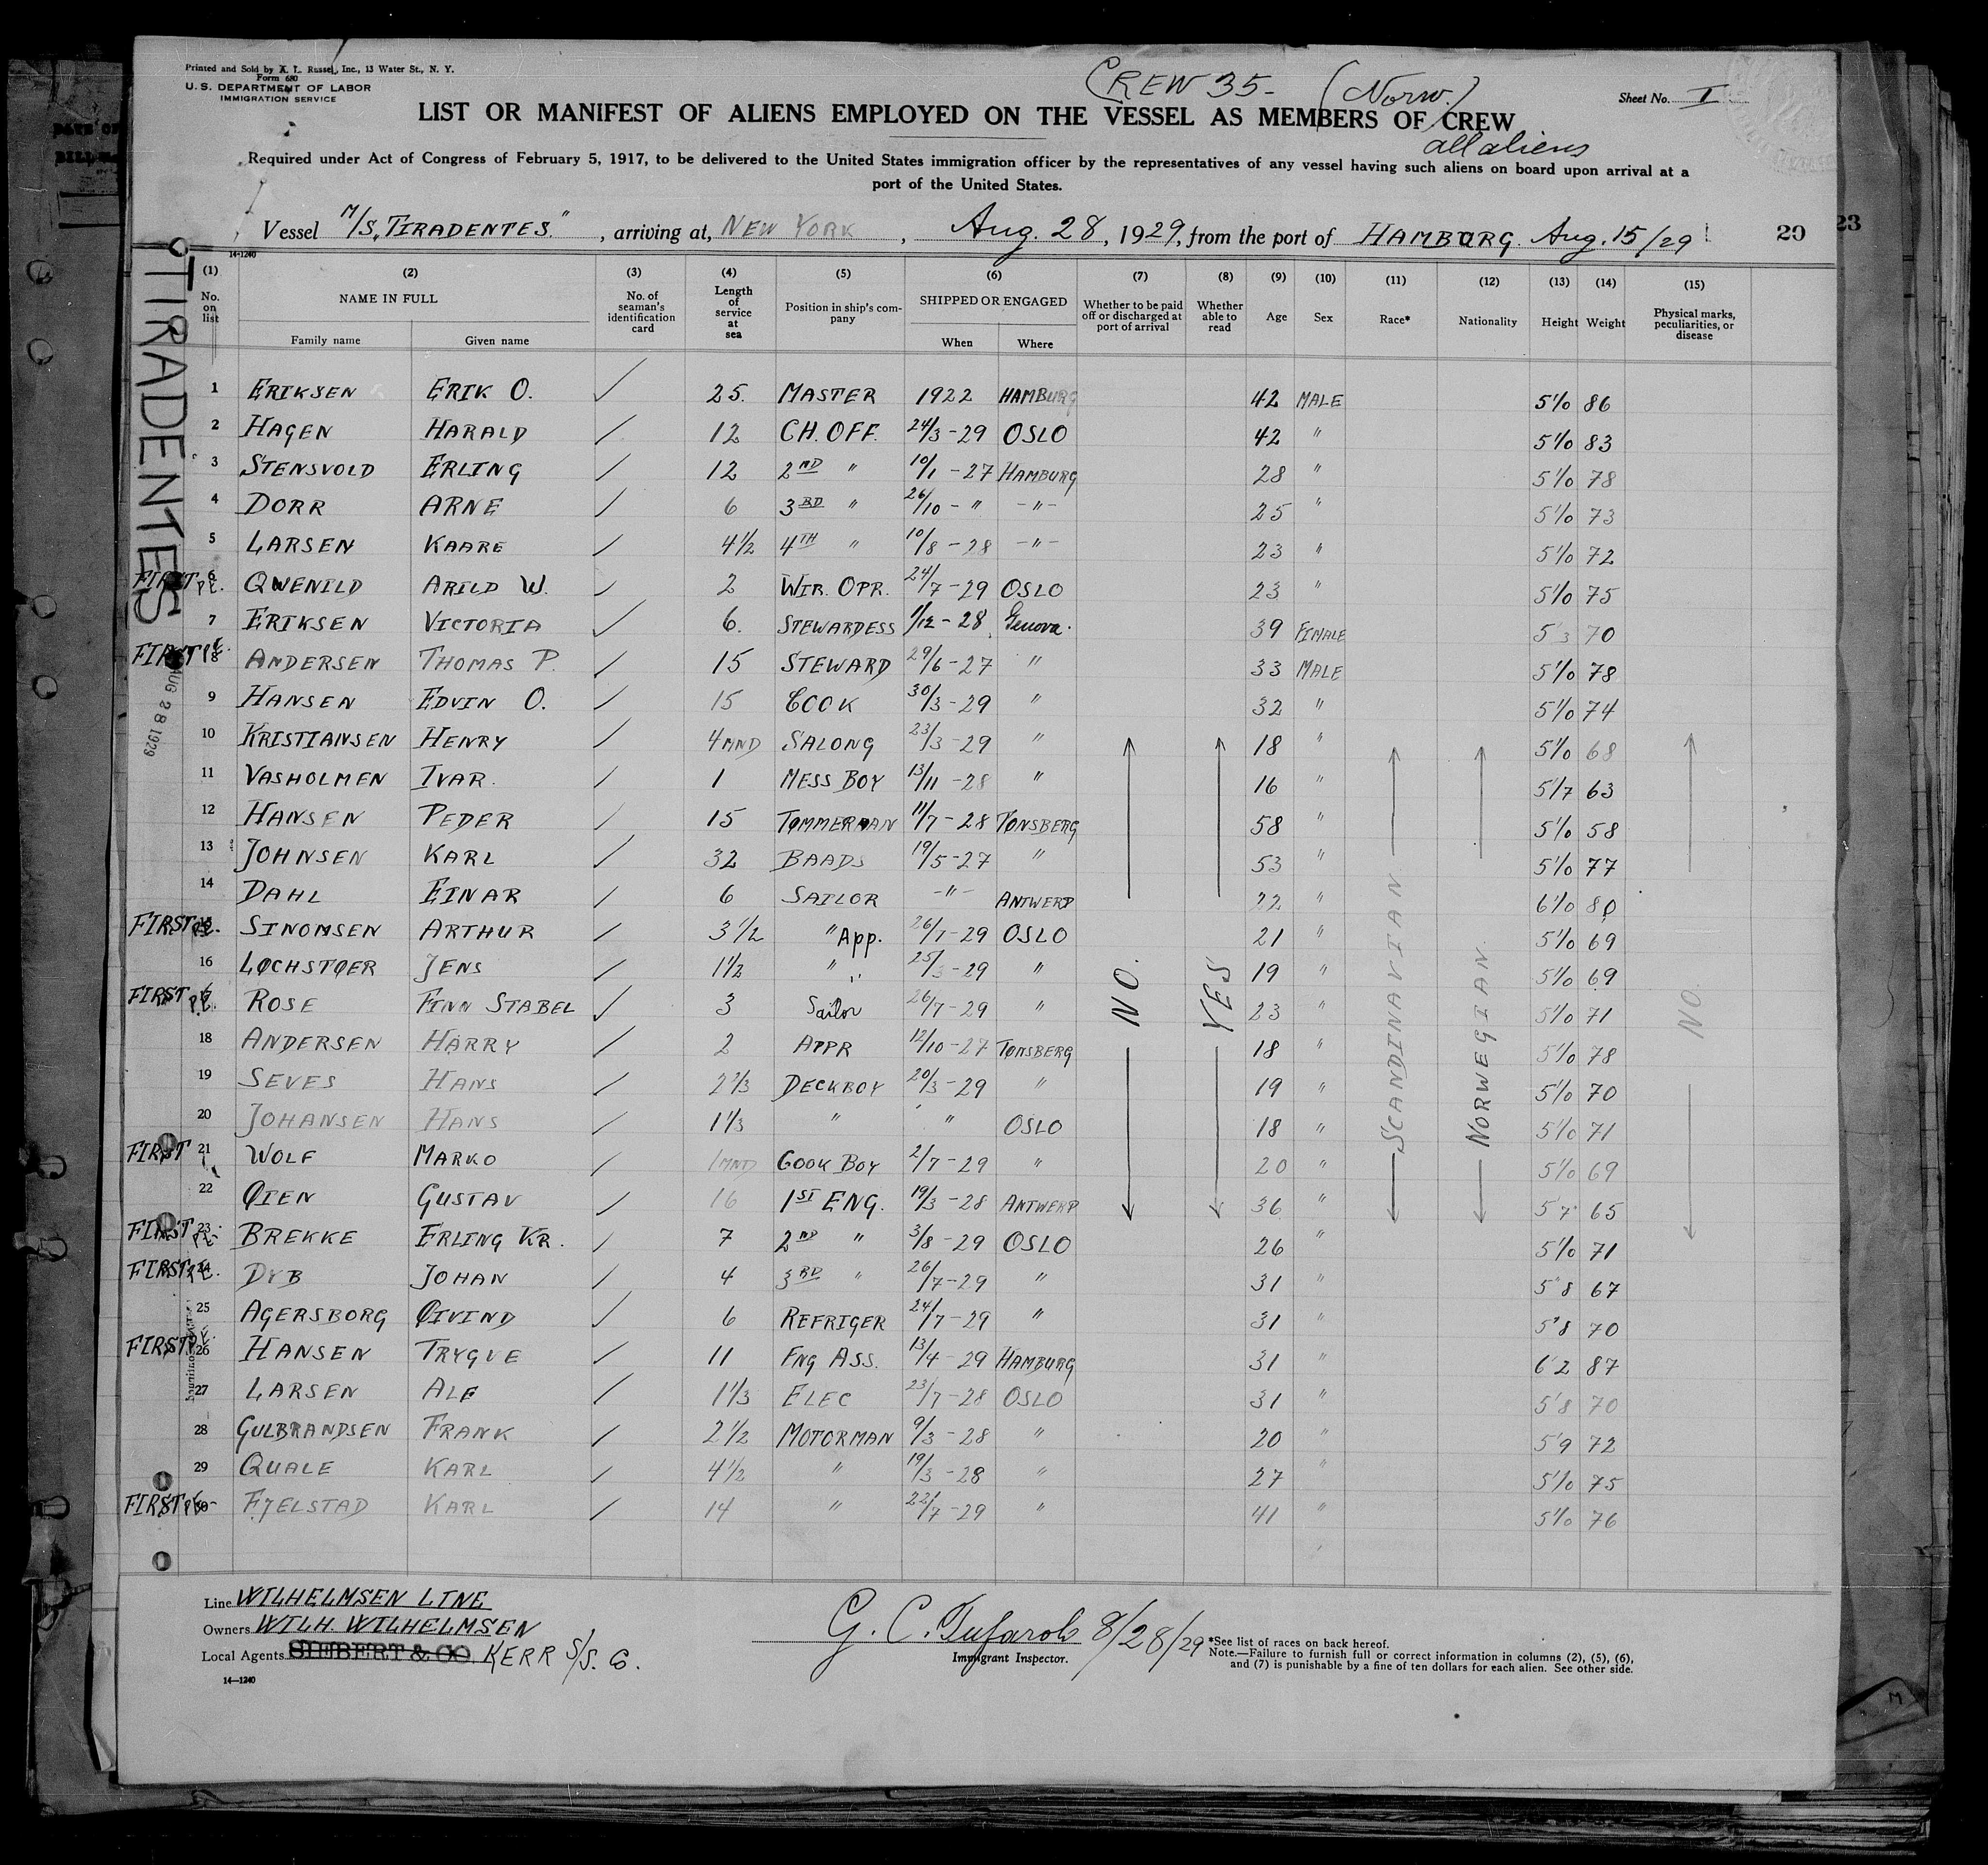 Printed and Sold by A. L. Russel, Inc., 13 Water St., N. Y.
Form 680
U. S. DEPARTMENT OF LABOR
IMMIGRATION SERVICE
CREW 35- (Norw.)
Sheet No. I
LIST OR MANIFEST OF ALIENS EMPLOYED ON THE VESSEL AS MEMBERS OF CREW
all aliens
Required under Act of Congress of February 5, 1917, to be delivered to the United States immigration officer by the representatives of any vessel having such aliens on board upon arrival at a
port of the United States.
Vessel M/S „TIRADENTES", arriving at, NEW YORK, Aug. 28, 1929, from the port of HAMBURG. Aug. 15/29
20 23
TIRADENTES
AUG 28 1929
14-1240
(1) (2) (3) (4) (5) (6) (7) (8) (9) (10) (11) (12) (13) (14) (15)
No. on list
NAME IN FULL
Family name Given name
No. of seaman's identification card
Length of service at sea
Position in ship's company
SHIPPED OR ENGAGED
When Where
Whether to be paid off or discharged at port of arrival
Whether able to read
Age Sex Race* Nationality Height Weight
Physical marks, peculiarities, or disease
1 ERIKSEN ERIK O. ✓ 25. MASTER 1922 HAMBURG 42 MALE 5'10 86
2 HAGEN HARALD ✓ 12 CH. OFF. 24/3-29 OSLO 42 " 5'10 83
3 STENSVOLD ERLING ✓ 12 2ND " 10/1-27 HAMBURG 28 " 5'10 78
4 DORR ARNE ✓ 6 3RD " 26/10-" -"- 25 " 5'10 73
5 LARSEN KAARE ✓ 4½ 4TH " 10/8-28 -"- 23 " 5'10 72
FIRST P.E. 6 QWENILD ARILD W. ✓ 2 WIR. OPR. 24/7-29 OSLO 23 " 5'10 75
7 ERIKSEN VICTORIA ✓ 6. STEWARDESS 1/12-28 Genova. 39 FIMALE 5'3 70
FIRST P.E. 8 ANDERSEN THOMAS P. ✓ 15 STEWARD 29/6-27 " 33 MALE 5'10 78
9 HANSEN EDVIN O. ✓ 15 COOK 30/3-29 " 32 " 5'10 74
10 KRISTIANSEN HENRY ✓ 4MND SALONG 23/3-29 " 18 " 5'10 68
11 VASHOLMEN IVAR. ✓ 1 MESS BOY 13/11-28 " 16 " 5'7 63
12 HANSEN PEDER ✓ 15 TØMMERMAN 11/7-28 TONSBERG 58 " 5'10 58
13 JOHNSEN KARL ✓ 32 BAADS 19/5-27 " 53 " 5'10 77
14 DAHL EINAR ✓ 6 SAILOR -"- ANTWERP 22 " 6'10 80
FIRST P.E. 15 SINOMSEN ARTHUR ✓ 3½ " App. 26/7-29 OSLO 21 " 5'10 69
16 LØCHSTØER JENS ✓ 1½ " " 25/3-29 " 19 " 5'10 69
FIRST P.E. 17 ROSE FINN STABEL ✓ 3 Sailor 26/7-29 " 23 " 5'10 71
18 ANDERSEN HARRY ✓ 2 APPR 12/10-27 TONSBERG 18 " 5'10 78
19 SEVES HANS ✓ 2⅔ DECKBOY 20/3-29 " 19 " 5'10 70
20 JOHANSEN HANS ✓ 1⅓ " " OSLO 18 " 5'10 71
FIRST 21 WOLF MARKO ✓ 1MND COOK BOY 2/7-29 " 20 " 5'10 69
22 ØIEN GUSTAV ✓ 16 1ST ENG. 19/3-28 ANTWERP 36 " 5'7 65
FIRST P.E. 23 BREKKE ERLING KR. ✓ 7 2ND " 3/8-29 OSLO 26 " 5'10 71
FIRST P.E. 24 DYB JOHAN ✓ 4 3RD " 26/7-29 " 31 " 5'8 67
25 AGERSBORG ØIVIND ✓ 6 REFRIGER 24/7-29 " 31 " 5'8 70
FIRST P.E. 26 HANSEN TRYGVE ✓ 11 ENG ASS. 13/4-29 HAMBURG 31 " 6'2 87
27 LARSEN ALF ✓ 1⅓ ELEC 23/7-28 OSLO 31 " 5'8 70
28 GULBRANDSEN FRANK ✓ 2½ MOTORMAN 9/3-28 " 20 " 5'9 72
29 QUALE KARL ✓ 4½ " 19/3-28 " 27 " 5'10 75
FIRST P.E. 30 FJELSTAD KARL ✓ 14 " 22/7-29 " 41 " 5'10 76
NO.
YES
SCANDINAVIAN
NORWEGIAN
NO.
Line WILHELMSEN LINE
Owners WILH. WILHELMSEN
Local Agents SIEBERT & CO. KERR S/S. Co.
14—1240
G. C. Tufarolo 8/28/29
Immigrant Inspector.
*See list of races on back hereof.
Note.—Failure to furnish full or correct information in columns (2), (5), (6),
and (7) is punishable by a fine of ten dollars for each alien. See other side.
M